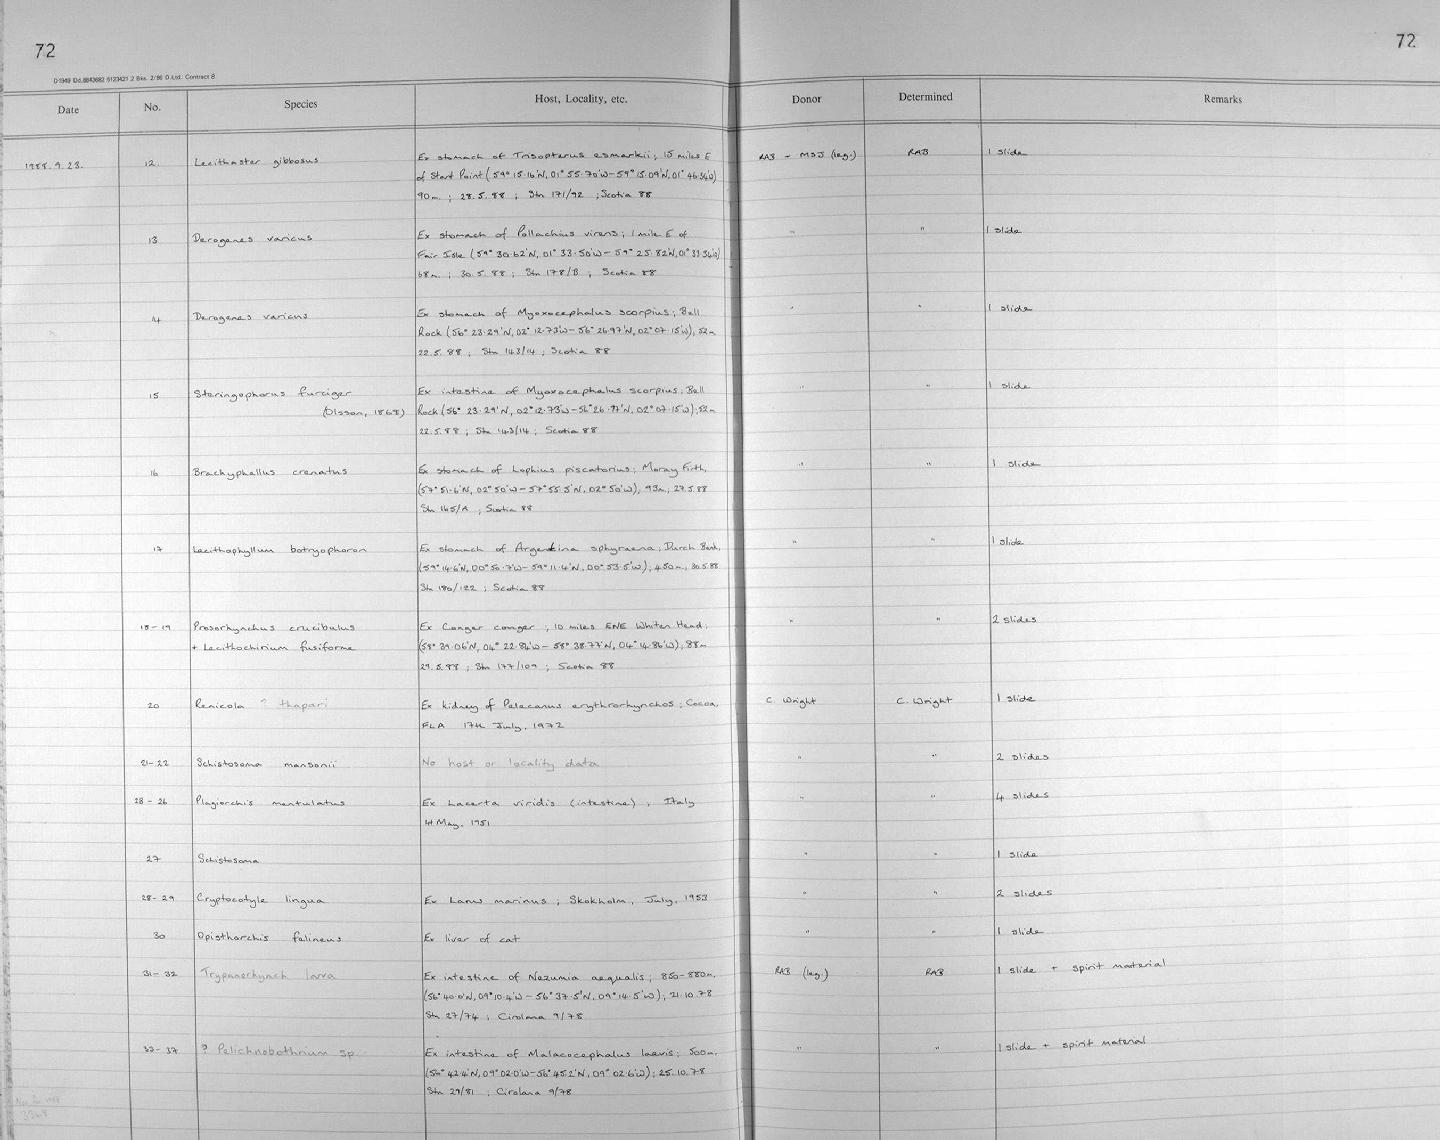 72
72
D1949 Dd.8843682 6123421 2 Bks. 2/86 O.Ltd. Contract 8
Date No. Species Host, Locality, etc. Donor Determined Remarks
1988.9.23. 12. Lecithaster gibbosus Ex stomach of Trisopterus esmarkii; 15 miles E RAB - MSJ (leg.) RAB 1 slide
of Start Point (59° 15.16'N, 01° 55.70'W - 59° 15.09'N, 01° 46.36'W)
90m. ; 28.5.88 ; Stn 171/92 ; Scotia 88
13 Derogenes varicus Ex stomach of Pollachius virens; 1 mile E of " " 1 slide
Fair Isle (59° 30.62'N, 01° 33.50'W - 59° 25.82'N, 01° 33.36'W)
68m. ; 30.5.88 ; Stn 178/B ; Scotia 88
14 Derogenes varicus Ex stomach of Myoxocephalus scorpius; Bell " " 1 slide
Rock (56° 23.29'N, 02° 12.73'W - 56° 26.97'N, 02° 07.15'W), 52m
22.5.88 ; Stn 143/14 ; Scotia 88
15 Steringophorus furciger Ex intestine of Myoxocephalus scorpius; Bell " " 1 slide
(Olsson, 1868) Rock (56° 23.29'N, 02° 12.73'W - 56° 26.97'N, 02° 07.15'W); 52m
22.5.88 ; Stn 143/14 ; Scotia 88
16 Brachyphallus crenatus Ex stomach of Lophius piscatorius; Moray Firth, " " 1 slide
(57° 51.6'N, 02° 50'W - 57° 55.5'N, 02° 50'W), 93m; 27.5.88
Stn 165/A ; Scotia 88
17 Lecithophyllum botryophoron Ex stomach of Argentina sphyraena; Durch Bank, " " 1 slide
(59° 14.6'N, 00° 50.7'W - 59° 11.4'N, 00° 53.5'W), 450m, 30.5.88
Stn 180/122 ; Scotia 88
18-19 Prosorhynchus crucibulus Ex Conger conger ; 10 miles ENE Whiten Head; " " 2 slides
+ Lecithochirium fusiforme (58° 39.06'N, 04° 22.84'W - 58° 38.77'N, 04° 14.86'W), 88m
29.5.88 ; Stn 177/109 ; Scotia 88
20 Renicola ? thapari Ex kidney of Pelecanus erythrorhynchos; Cocoa, C. Wright C. Wright 1 slide
FLA 17th July, 1972
21-22 Schistosoma mansonii No host or locality data " " 2 slides
23-26 Plagiorchis mentulatus Ex Lacerta viridis (intestine) ; Italy " " 4 slides
14 May, 1951
27 Schistosoma " " 1 slide
28-29 Cryptocotyle lingua Ex Larus marinus ; Skokholm, July, 1953 " " 2 slides
30 Opisthorchis felineus Ex liver of cat " " 1 slide
31-32 Trypanorhynch larva Ex intestine of Nezumia aequalis; 850-880m. RAB (leg.) RAB 1 slide + spirit material
(56° 40.0'N, 09° 10.4'W - 56° 37.5'N, 09° 14.5'W), 21.10.78
Stn 27/74 ; Cirolana 9/78
33-37 ? Pelichnobothrium sp. Ex intestine of Malacocephalus laevis; 500m. " " 1 slide + spirit material
(56° 42.4'N, 09° 02.0'W - 56° 45.2'N, 09° 02.6'W); 25.10.78
Stn 29/81 ; Cirolana 9/78
3368